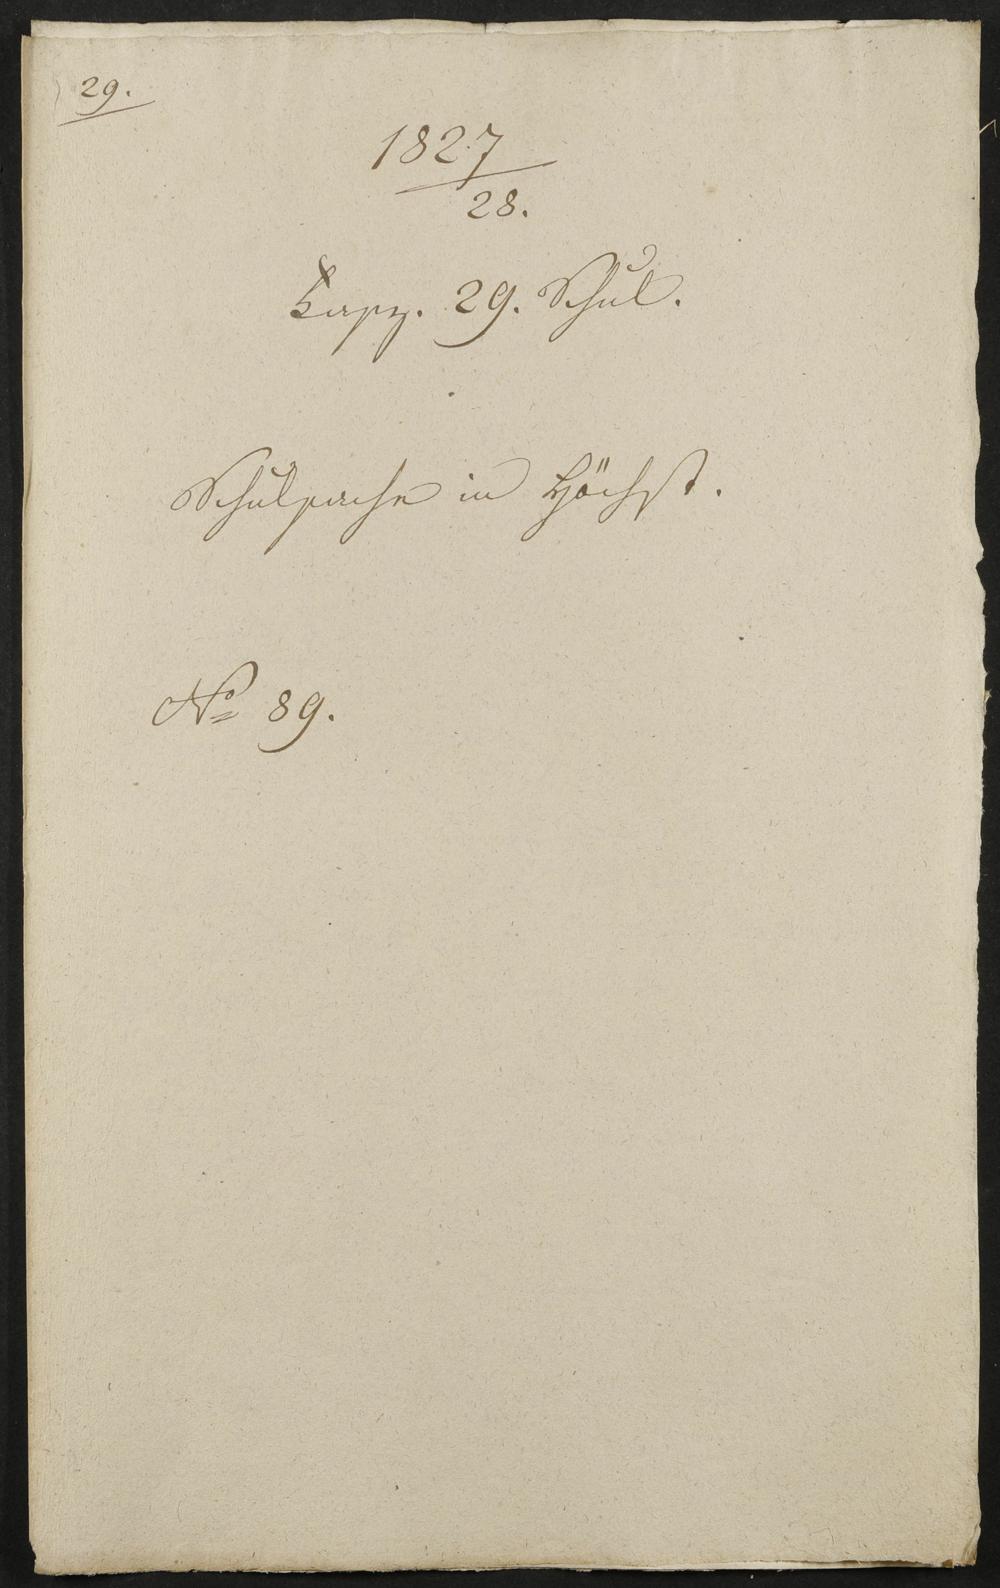 29.
1827
28.
Fasz. 29. Schul.
Schulsache in Höchst.
No 89.